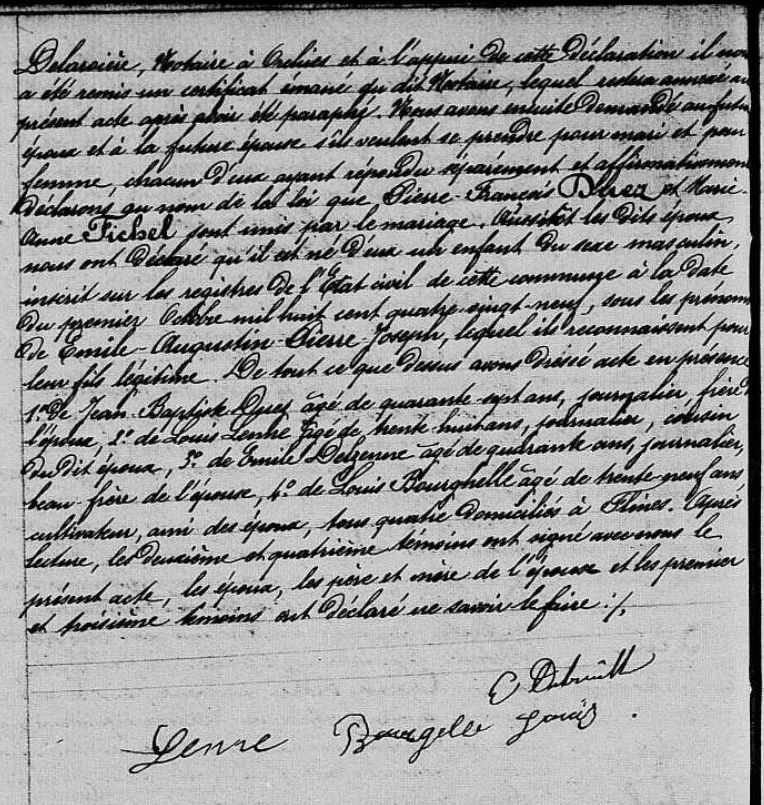 Delarosière, Notaire à Orchies et à l'appui de cette déclaration il nous
a été remis un certificat émané du dit Notaire, lequel restera annexé au
présent acte après avoir été paraphé. Nous avons ensuite demandé au futur
époux et à la future épouse s'ils veulent se prendre pour mari et pour
femme, chacun d'eux ayant répondu séparément et affirmativement
déclarons au nom de la loi que Pierre-François Durez et Marie-
Anne Fichel sont unis par le mariage. Aussitôt les dits époux
nous ont déclaré qu'il est né d'eux un enfant du sexe masculin,
inscrit sur les registres de l'Etat civil de cette commune à la date
du premier Octobre mil huit cent quatre-vingt-neuf, sous les prénoms
de Emile-Augustin-Pierre Joseph, lequel ils reconnaissent pour
leur fils légitime. De tout ce que dessus avons dressé acte en présence
1° de Jean-Baptiste Durez âgé de quarante sept ans, journalier, frère de
l'époux, 2° de Louis Lenne âgé de trente huit ans, journalier, cousin
du dit époux, 3° de Emile Delzenne âgé de quarante ans, journalier,
beau-frère de l'épouse, 4° de Louis Bourghelle âgé de trente-neuf ans
cultivateur, ami des époux, tous quatre domiciliés à Flines. Après
lecture, les deuxième et quatrième témoins ont signé avec nous le
présent acte, les époux, les père et mère de l'épouse et les premier
et troisième témoins ont déclaré ne savoir le faire ./.
Lenne Bourgelle Louis